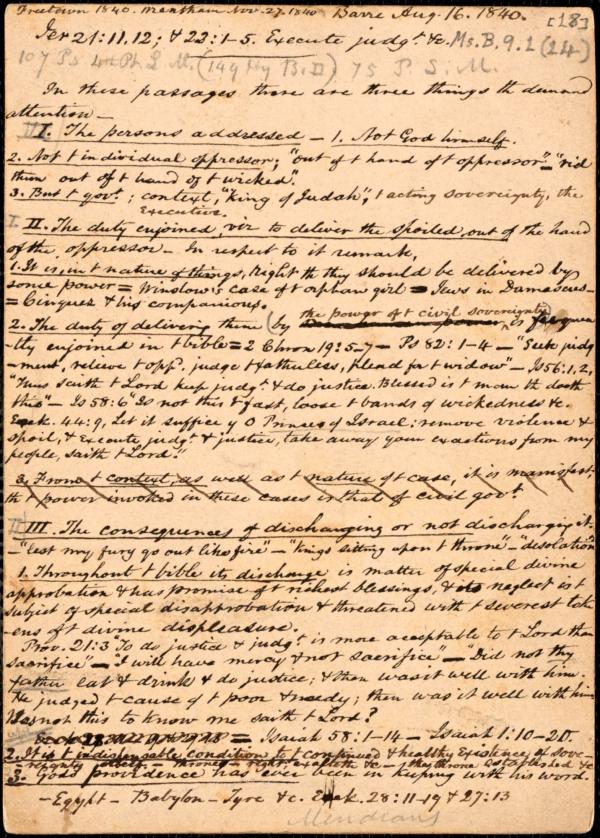 Freetown 1840. Mentham Nov. 27. 1840 Barre Aug. 16. 1840. [18]
Jer 21:11,12; & 22:1-5. Execute judgt. &c. Ms. B. 9. 1 (24)
107 Ps 4th Pt. L. M. (149 Hy B. II) 75 P. S. M.
In these passages there are three things th demand
attention —
III. The persons addressed — 1. Not God himself.
2. Not t individual oppressor; "out of t hand of t oppressor" — "rid
them out of t hand of t wicked".
3. But t govt.; context, "King of Judah", t acting sovereignty, the
Executive.
I. II. The duty enjoined, viz to deliver the spoiled out of the hand
of the oppressor — In respect to it remark,
1. It is, in t nature of things, right th they should be delivered by
some power = Winslow's case of t orphan girl = Jews in Damascus =
= Cinquez & his companions.
2. The duty of delivering them (by the power of t civil sovereignty) is frequen
-tly enjoined in t bible = 2 Chron 19:5-7 — Ps 82:1-4 — "Seek judg
-ment, relieve t oppd. judge t fatherless, plead for t widow" — Is 56:1,2,
"Thus saith t Lord keep judgt. & do justice. Blessed is t man th doeth
this" — Is 58:6 "Is not this t fast, loose t bands of wickedness &c.
Ezek. 44:9, Let it suffice y O Princes of Israel: remove violence &
spoil, & Execute judgt. & justice, take away your exactions from my
people, saith t Lord."
3. From t context, as well as t nature of t case, it is manifest,
th t power invoked in these cases is that of civil govt.
II III. The consequences of discharging or not discharging it.
— "lest my fury go out like fire" — "Kings sitting upon t throne" — "desolation"
1. Throughout t bible its discharge is matter of special divine
approbation & has promise of t richest blessings, & its neglect is t
subject of special disapprobation & threatened with t severest tok
-ens of divine displeasure.
Prov. 21:3 "To do justice & judgt. is more acceptable to t Lord than
sacrifice" — "I will have mercy & not sacrifice" — "Did not thy
father eat & drink & do justice; & then was it well with him.
He judged t cause of t poor & needy; then was it well with him
Was not this to know me saith t Lord?
= Isaiah 58:1-14 — Isaiah 1:10-20.
2. It is t indispensable condition to t continued & healthy existence of sove-
-reignty — throne — right exalteth &c — thy throne established &c
3. God's providence has ever been in keeping with his word.
— Egypt — Babylon — Tyre &c. Ezek. 28:11-19 & 27:13
Mendians